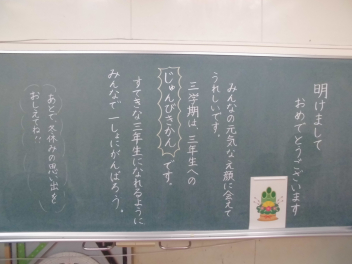 明けまして
おめでとうございます
みんなの元気なえ顔に会えて
うれしいです。
三学期は、三年生への
じゅんびきかんです。
すてきな三年生になれるように
みんなで一しょにがんばろう。
あとで、冬休みの思い出を
おしえてね。